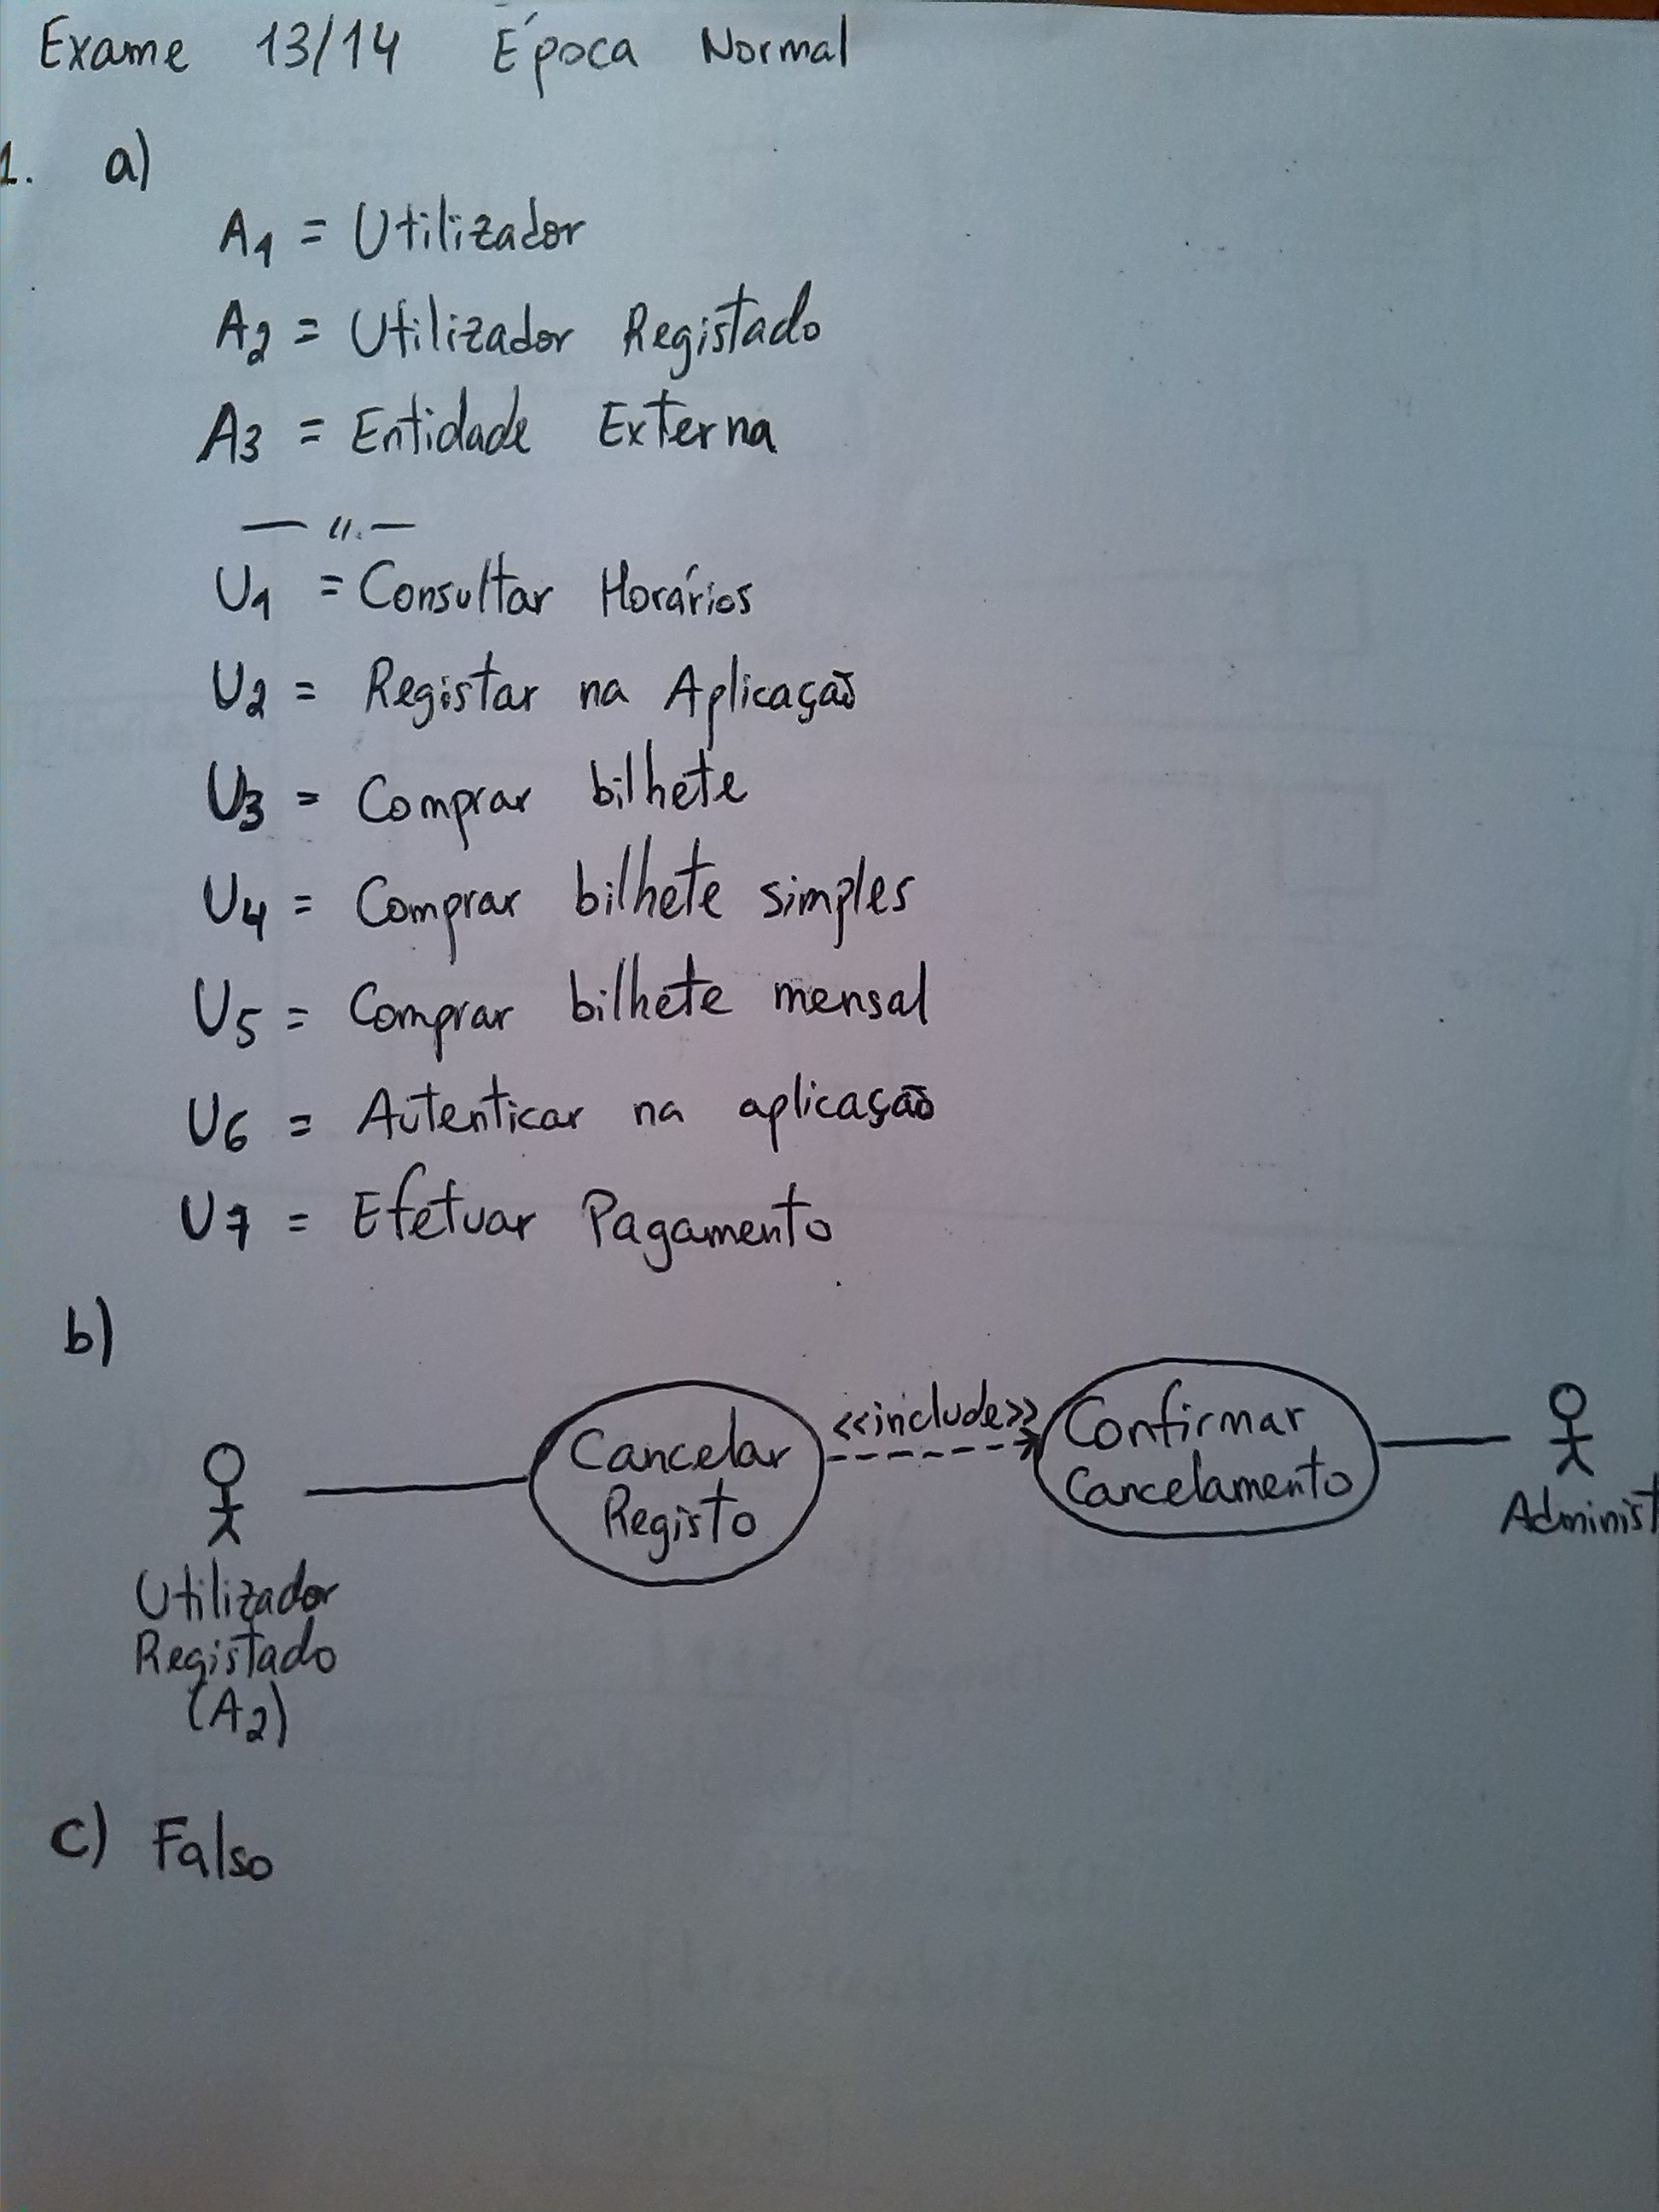 Exame 13/14 Época Normal
1. a)
A1 = Utilizador
A2 = Utilizador Registado
A3 = Entidade Externa
— 11. —
U1 = Consultar Horários
U2 = Registar na Aplicação
U3 = Comprar bilhete
U4 = Comprar bilhete simples
U5 = Comprar bilhete mensal
U6 = Autenticar na aplicação
U7 = Efetuar Pagamento
b)
<<include>>
Cancelar
Registo
Confirmar
Cancelamento
Administ
Utilizador
Registado
(A2)
c) Falso